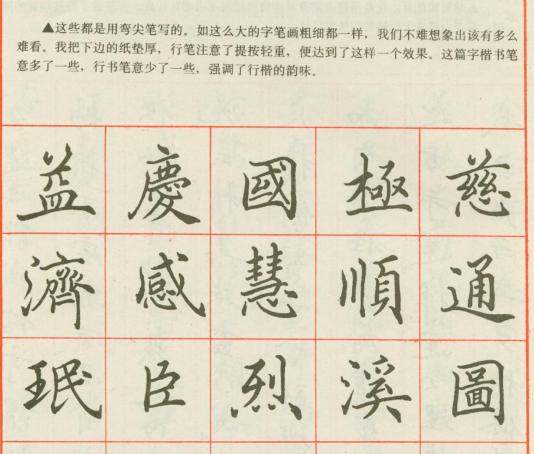 ▲这些都是用弯尖笔写的。如这么大的字笔画粗细都一样，我们不难想象出该有多么
难看。我把下边的纸垫厚，行笔注意了提按轻重，便达到了这样一个效果。这篇字楷书笔
意多了一些，行书笔意少了一些，强调了行楷的韵味。
益慶國極慈
濟感慧順通
珉臣烈溪圖